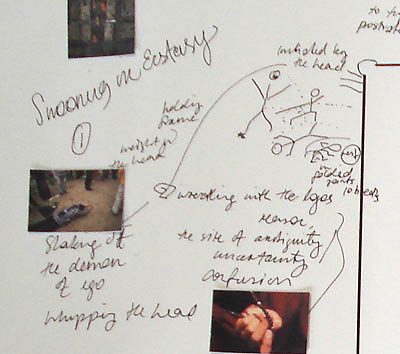 to t
Swooning in Ecstasy
initiated by
the head
1
holding
frame
weight of
the head
in
folded
joints
10 beats
2 wrestling with the logos
reason,
the site of ambiguity
uncertainty
confusion
Shaking off
the demon
of ego
whipping the head